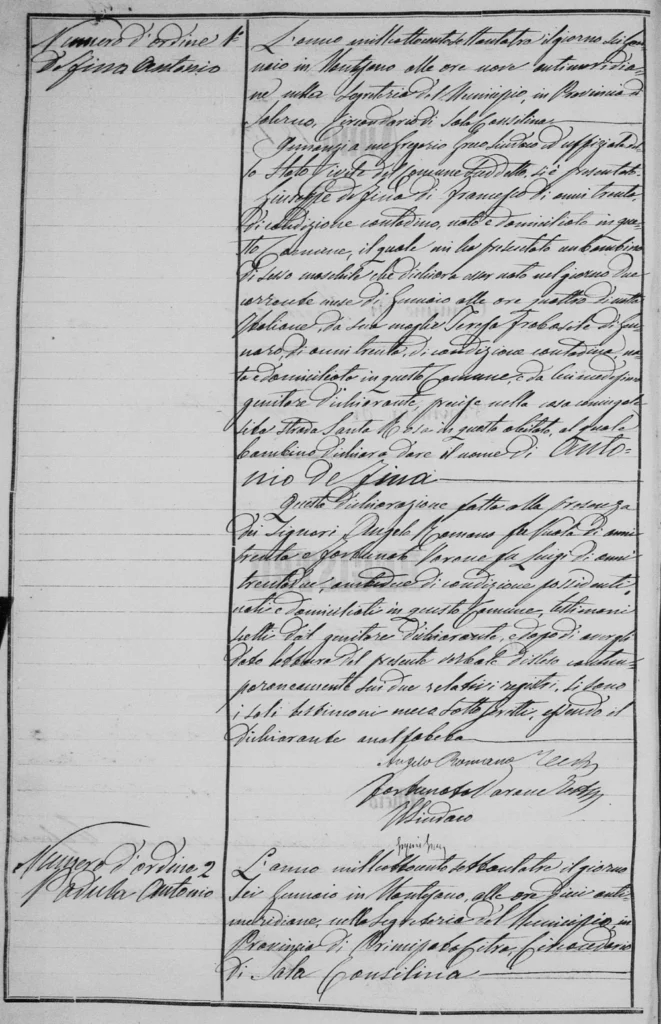 Numero d'ordine 1º
De fina Antonio
L'anno milleottocento settantatre il giorno sei Gen
naio in Montesano alle ore nove antimeridia
ne nella Segreteria del Municipio, in Provincia di
Salerno, Circondario di Sala Consilina
Dinanzi a me Gregorio Sindaco ed uffiziale del
lo Stato Civile del Comune suddetto, si è presentato
Giuseppe de fina di Francesco di anni trenta,
di condizione contadino, nato e domiciliato in que
sto Comune, il quale mi ha presentato un bambino
di sesso maschile che dichiara esser nato nel giorno due
corrente mese di Gennaio alle ore quattro di notte
Italiane, da sua moglie Teresa di Gen
naro di anni trenta, di condizione contadina, na
ta e domiciliata in questo Comune, e da lui medesimo
genitore dichiarante, nella casa coniugale
sita strada Santa Rosa in questo abitato, al quale
bambino dichiara dare il nome di Anto-
nio de fina
Questa dichiarazione fatta alla presenza
dei Signori Angelo Romano fu di anni
trenta e fortunato Varone fu Luigi di anni
trentadue, amendue di condizione possidenti
nati e domiciliati in questo Comune, testimoni
scelti dal genitore dichiarante, e dopo di avergli
dato lettura del presente verbale disteso contem
poraneamente sui due relativi registri, si sono
i soli testimoni meco sottoscritti, essendo il
dichiarante analfabeta
Angelo Romano
fortunato Varone
Il Sindaco
Numero d'ordine 2
Padula Antonio
L'anno milleottocento settantatre il giorno
sei Gennaio in Montesano, alle ore dieci anti
meridiane, nella Segreteria del Municipio, in
Provincia di Principato Citra, Circondario
di Sala Consilina